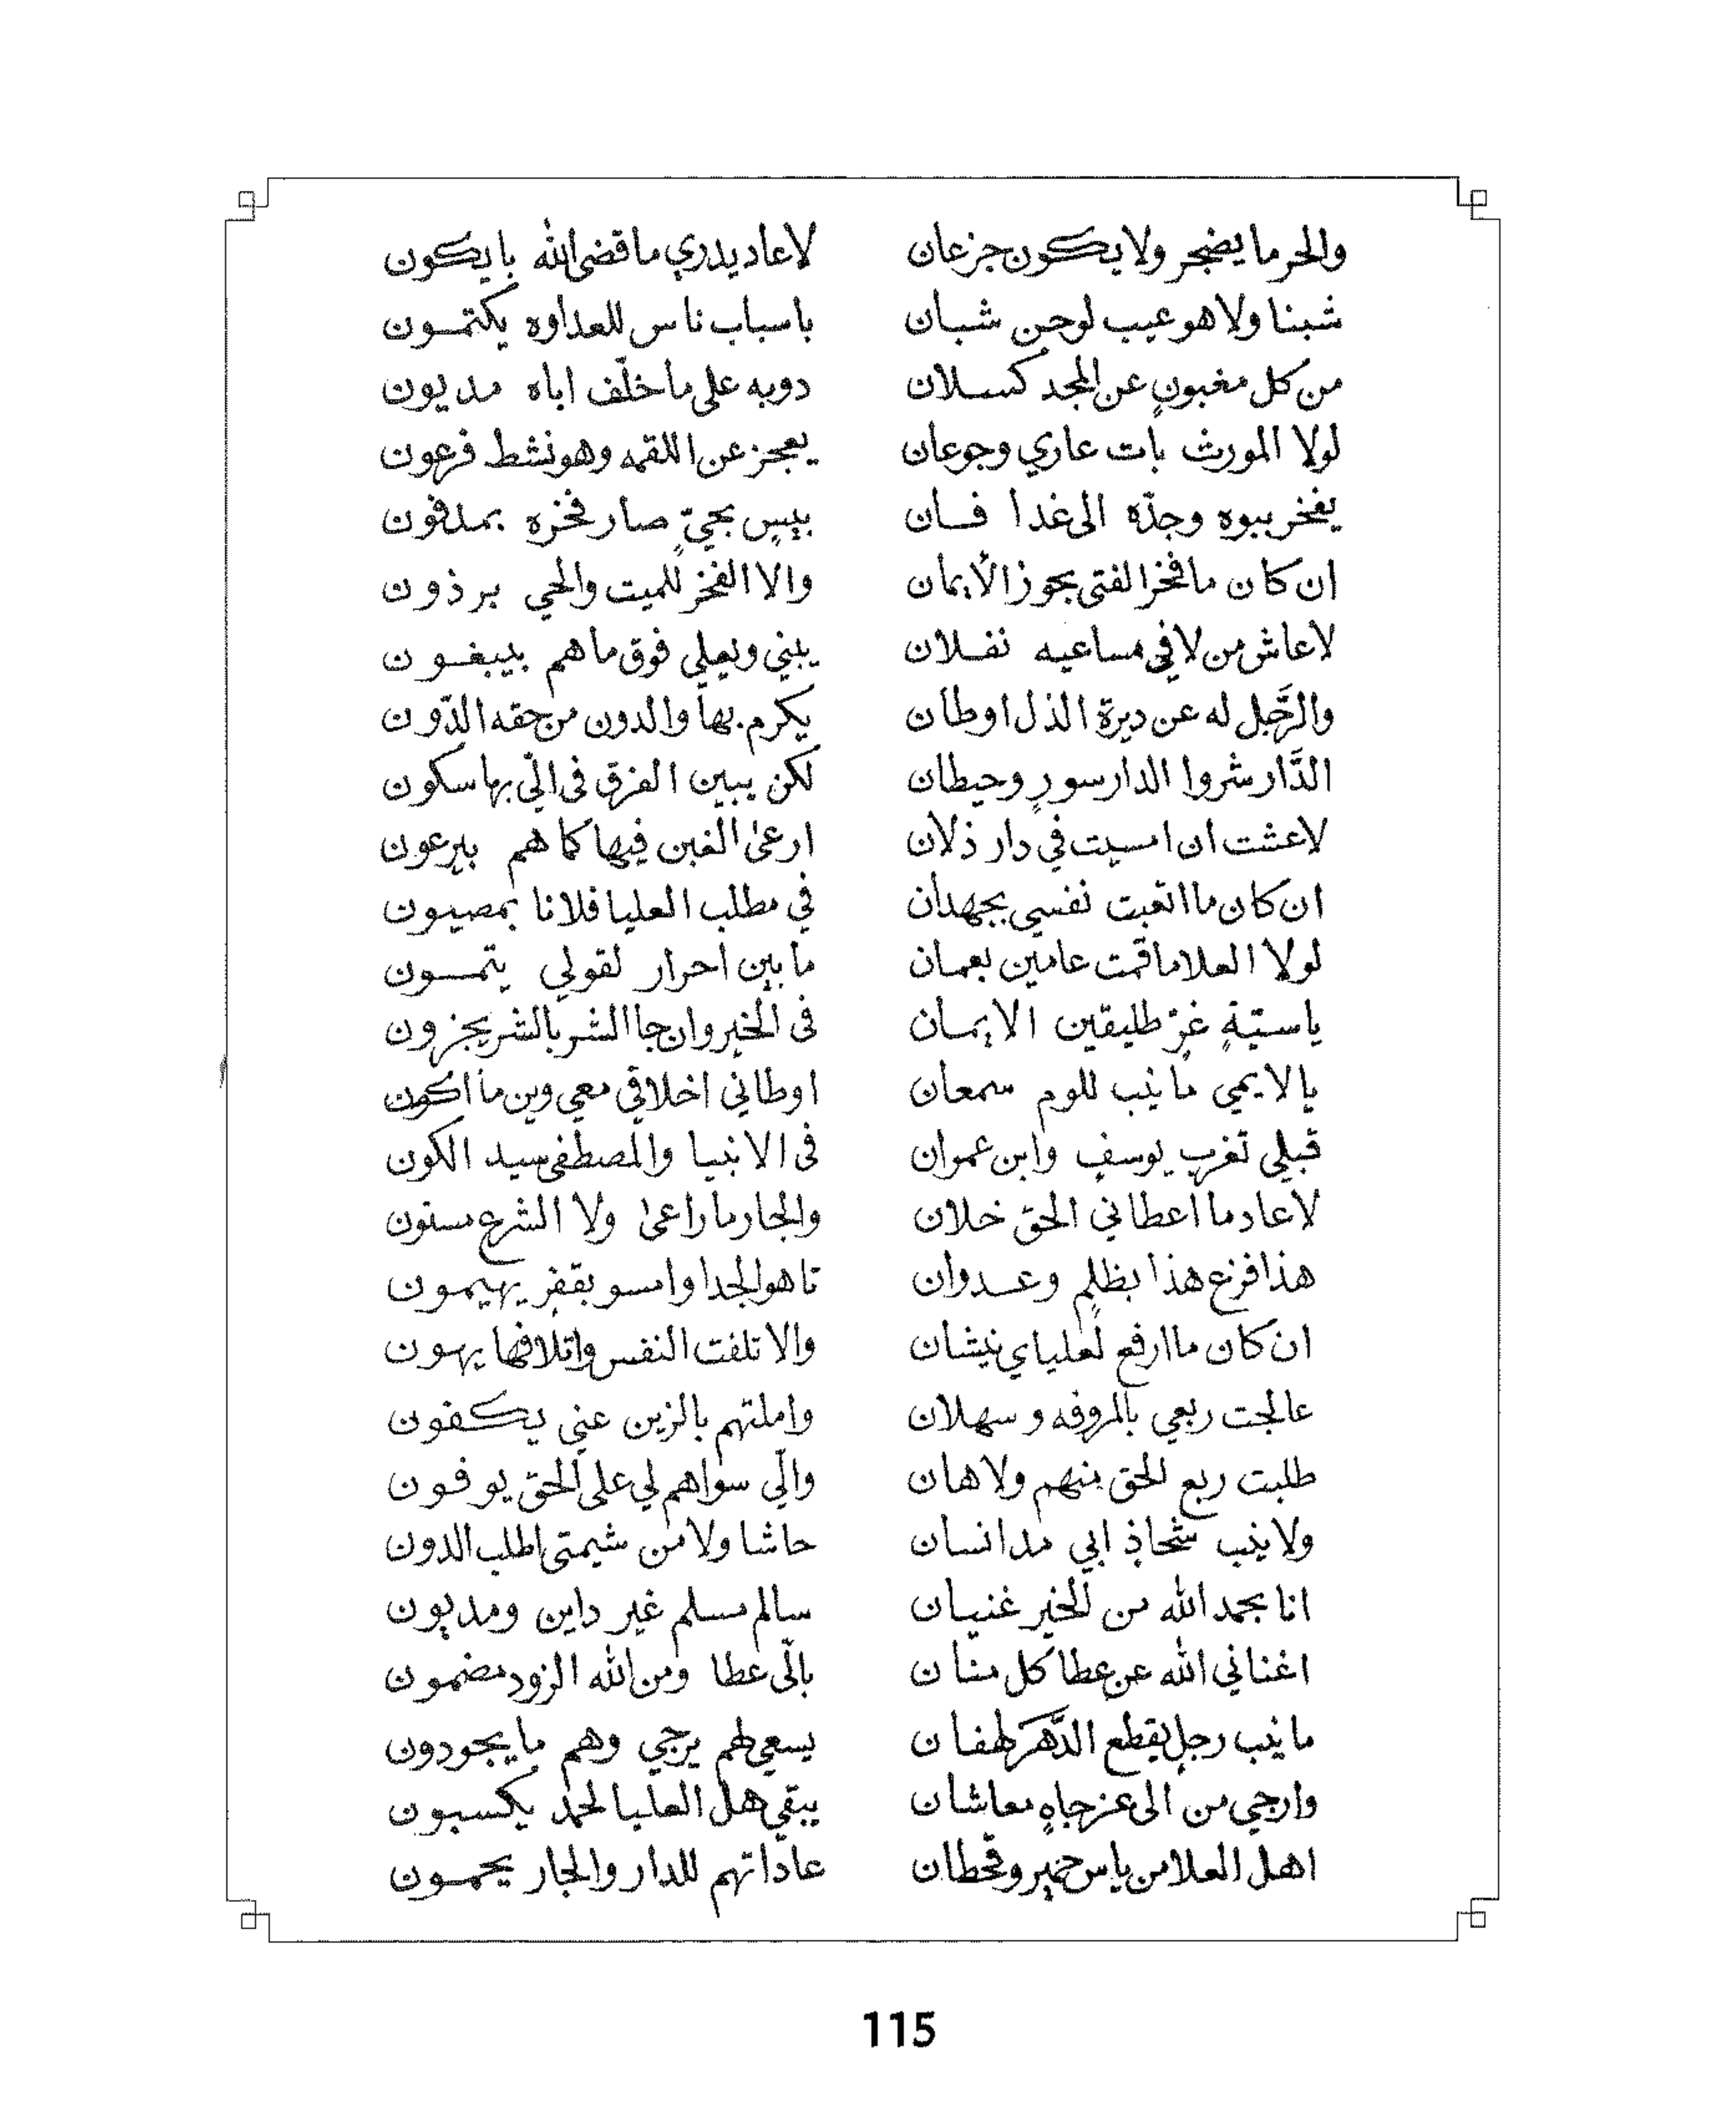 والحر ما يضجر ولا يكون جزعان لا عاد يدري ما قضى الله بايكون
شبنا ولا هو عيب لوحن شبان باسباب ناس للعداوه يكتمون
من كل مغبونٍ عن المجد كسلان دوبه على ما خلّف اباه مديون
لولا المورث بات عاري وجوعان يعجز عن اللقمه وهو نشط فرعون
يفخر ببوه وجدّه الى غدا فان بيسٍ بحيٍّ صار فخره بمدفون
ان كان ما فخر الفتى بجوز الأيمان والا الفخر للميت والحي برذون
لا عاش من لا في مساعيه نفلان يبني ويعلي فوق ما هم بيبغون
والرَّجل له عن ديرة الذل اوطان يكرم بها والدون من حقه الدّون
الدَّار شروا الدار سورٍ وحيطان لكن يبين الفرق في الّي بها سكون
لا عشت ان امسيت في دار ذلان ارعى الغبن فيها كما هم بيرعون
ان كان ما اتعبت نفسي بجهدان في مطلب العليا فلانا بمصيون
لولا العلا ما قمت عامين بعمان ما بين احرار لقولي يتمسون
يا ستيةٍ غرّ طليقين الايمان في الخير وان جا الشر بالشر يجزون
يا لايمي مانيب للوم سمعان اوطاني اخلاقي معي وين ما اكون
قبلي تغرب يوسفٍ وابن عمران في الانبيا والمصطفى سيد الكون
لا عاد ما اعطاني الحق خلان والجار ما راعى ولا الشرع مسنون
هذا فزع هذا بظلمٍ وعدوان تاهو الجدا وامسو بقفرٍ يهيمون
ان كان ما ارفع لعلياي نيشان والا تلفت النفس واتلافها يهون
عالجت ربعي بالمروفه وسهلان واملتهم بالزين عني يكفون
طلبت ربع الحق منهم ولا هان والّي سواهم لي على الحق يوفون
ولانيب شحاذٍ ابي مد انسان حاشا ولا من شيمتي اطلب الدون
انا بحمد الله من الخير غنيان سالم مسلم غير داين ومديون
اغناني الله عن عطا كل منان بالّي عطا ومن الله الزود مضمون
مانيب رجلٍ يقطع الدَّهَر لهفان يسعي لهم يرجي وهم ما يجودون
وارجي من الى عزجاهٍ معاشان يبقي هل العليا لحمد يكسبون
اهل العلا من ياس حمير وقحطان عاداتهم للدار والجار يحمون
115